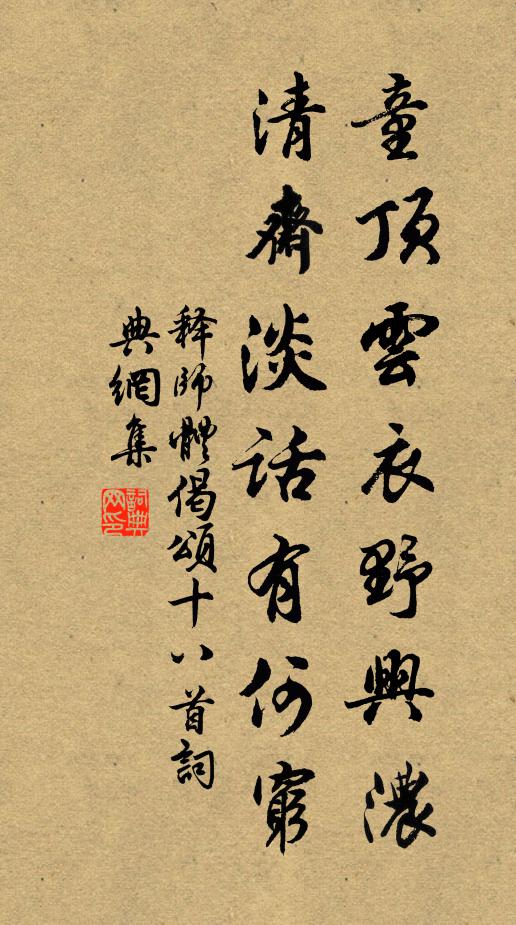 童頂雲衣野興濃
清齋淡話有何窮
釋師體偈頌十八首詞
典網集
詞典網印